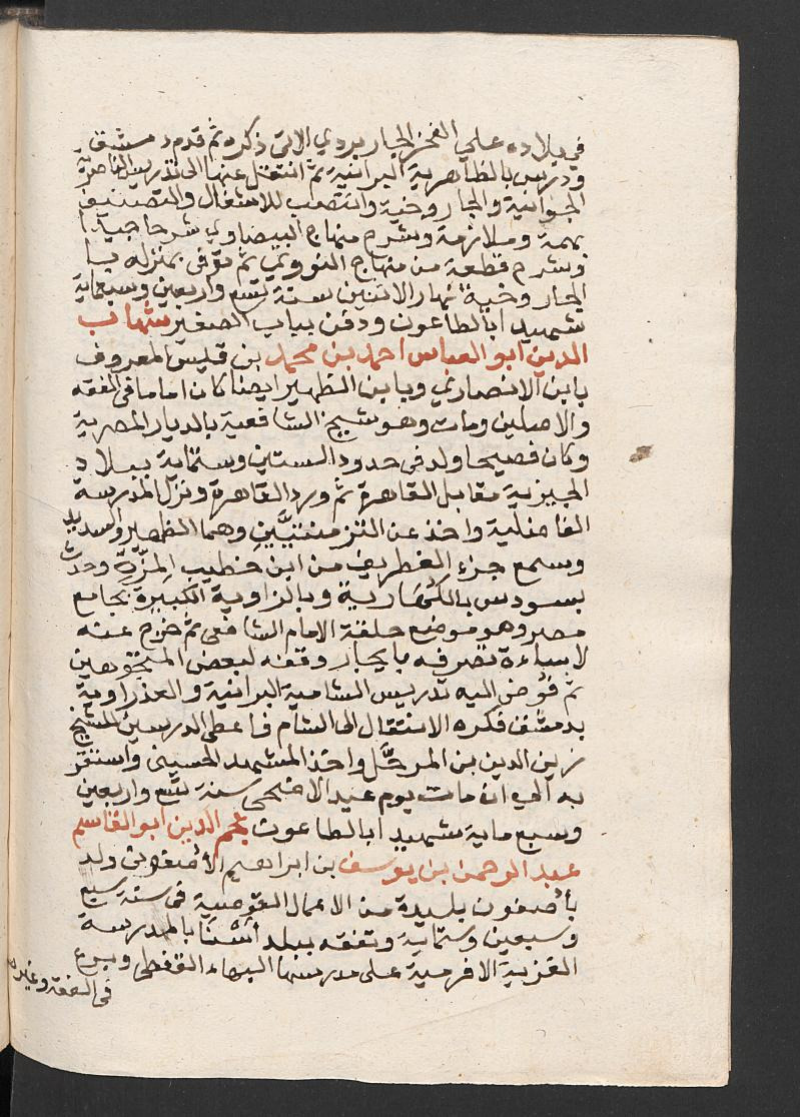 في بلاده علي الفخر الجاربردي الاتى ذكره ثم قدم دمشق
ودرس بالظاهرية البرانية ثم انتقل عنها الى تدريس الناصرية
الجوانية والجاروخية وانتصب للاشتغال والتصنيف
بهمة وملازمة وشرح منهاج البيضاوي شرحا جيدا
وشرح قطعة من منهاج النووي ثم توفى بمنزله با
لجاروخية نهار الاثنين سنة تسع واربعين وسبعماية
شهيدا بالطاعون ودفن بباب الصغير شهاب
الدين ابو العباس احمد بن محمد بن قليس المعروف
بابن الانصاري وبابن الظهير ايضا كان اماما فى الفقه
والاصلين ومات وهو شيخ الشافعية بالديار المصرية
وكان فصيحا ولد فى حدود الستين وستماية ببلاد
الجيزية مقابل القاهرة ثم ورد القاهرة ونزل المدرسة
الفاضلية واخذ عن التزمنتيَّينِ وهما الظهير والسديد
وسمع جزء الغطريف من ابن خطيب المِزّةِ وحدث
بسودس بالكهارية وبالزاوية الكبيرة بجامع
مصر وهو موضع حلقة الامام الشافعى ثم خرج عنه
لاساءة تصرفه بايجار وقفه لبعض المتجوهين
ثم فوض اليه تدريس الشامية البرانية والعذراوية
بدمشق فكره الانتقال الى الشام فاعطى الدرسين للشيخ
زين الدين بن المرحَّل واخذ المشهد الحسينى واستقر
به الي ان مات يوم عيد الاضحى سنة تسع واربعين
وسبع ماية شهيدا بالطاعون نجم الدين ابو القاسم
عبد الرحمن بن يوسف بن ابراهيم الأصفونى ولد
بأصفون بليدة من الاعمال القوصية فى سنة سبع
وسبعين وستماية وتفقه ببلد أسْنَا بالمدرسة
العزية الافرمية على مدرسها البهاء القفطى وبرع
فى الفقه وغيره